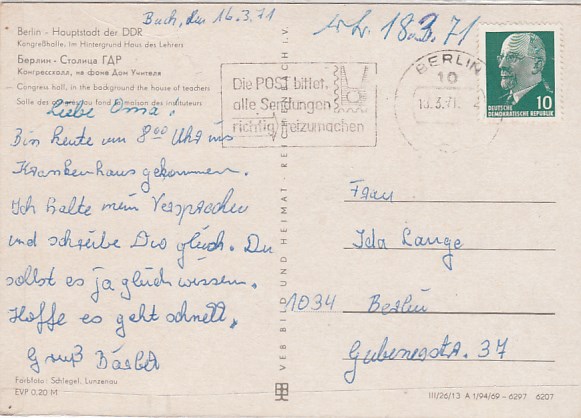 Buch, den 16.3.71
18.3.71
Berlin - Hauptstadt der DDR
Kongreßhalle, im Hintergrund Haus des Lehrers
Берлин - Столица ГДР
Конгрессхалл, на фоне Дом Учителя
Congress hall, in the background the house of teachers
Salle des congrès, au fond la maison des instituteurs
Liebe Oma!
Bin heute um 8⁰⁰ Uhr ins
Krankenhaus gekommen.
Ich halte mein Versprechen
und schreibe Dir gleich. Du
sollst es ja gleich wissen.
Hoffe es geht schnell.
Gruß Bärbel
Farbfoto: Schlegel, Lunzenau
EVP 0,20 M
VEB BILD UND HEIMAT REICHENBACH I. V.
Die POST bittet,
alle Sendungen
richtig freizumachen
BERLIN
10
DEUTSCHE
DEMOKRATISCHE REPUBLIK
10
Frau
Ida Lange
1034 Berlin
Gubenerstr. 37
III/26/13 A 1/94/69 - 6297 6207